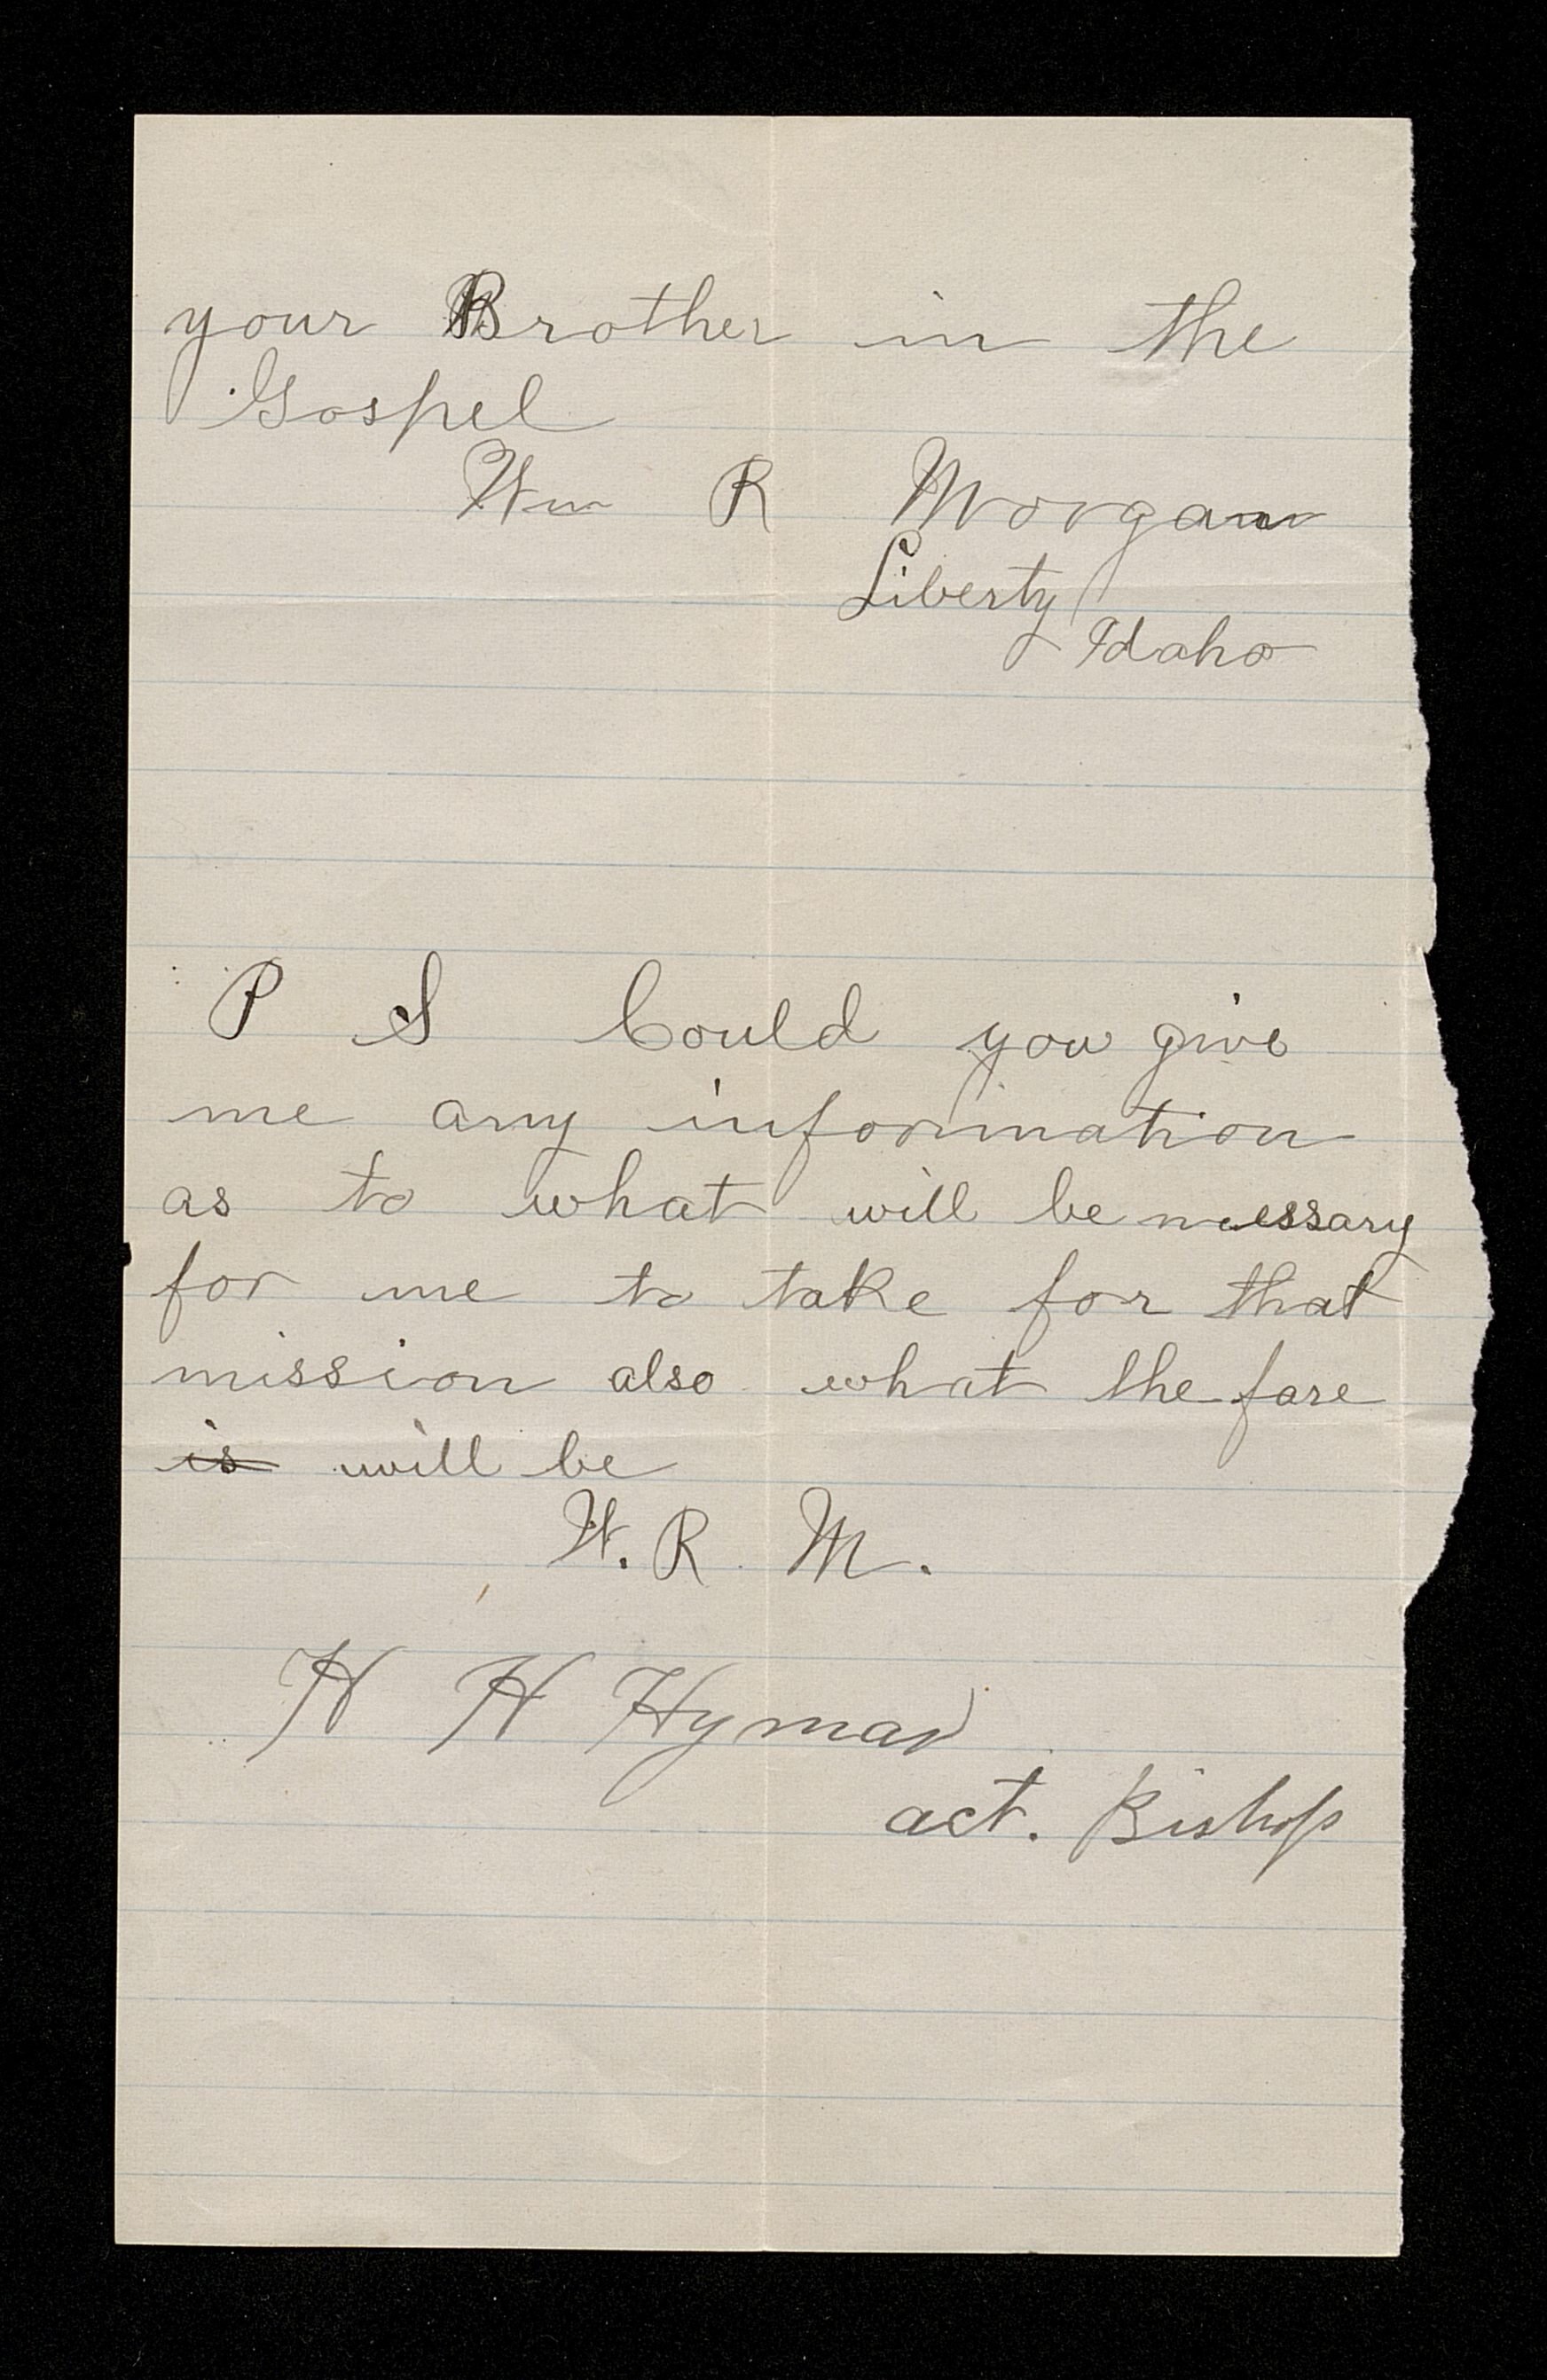 your Brother in the
Gospel
Wm R Morgan
Liberty
Idaho
P S Could you give
me any information
as to what will be nessary
for me to take for that
mission also what the fare
~~is~~ will be
W. R. M.
H H Hymas
act. Bishop